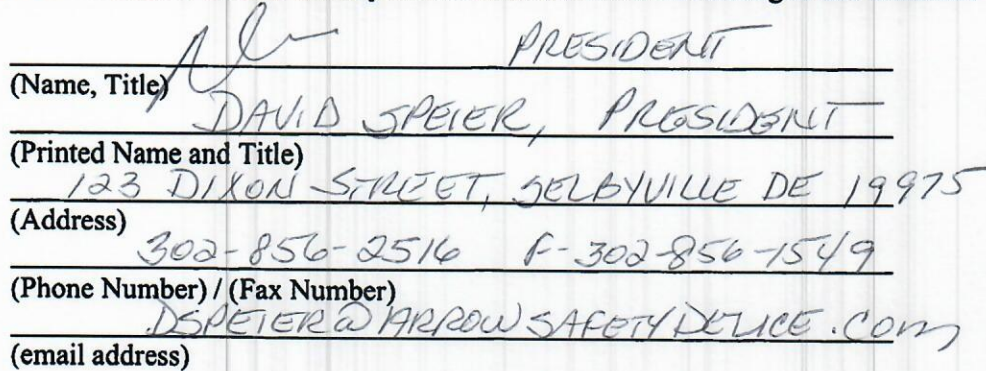 PRESIDENT
(Name, Title)
DAVID SPEIER, PRESIDENT
(Printed Name and Title)
123 DIXON STREET, SELBYVILLE DE 19975
(Address)
302-856-2516 F-302-856-1549
(Phone Number) / (Fax Number)
DSPEIER@ARROWSAFETYDEVICE.COM
(email address)